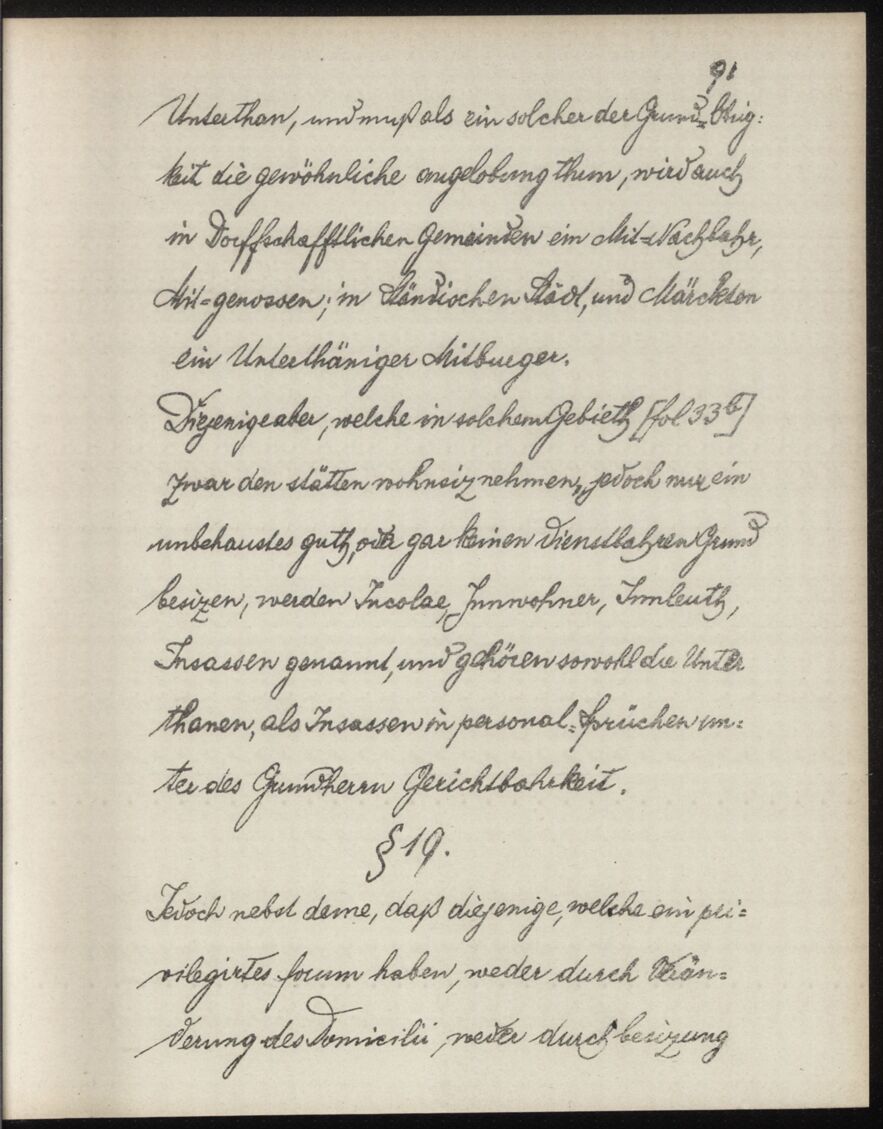 91
Unterthan, und muß als ein solcher der Grund=Obrig:
keit die gewöhnliche angelobung thun, wird auch
in Dorffschafftlichen Gemeinden ein Mit=Nachbahr,
Mit=genossen; in Ständischen Städt, und Märckten
ein Unterthäniger Mitburger.
Diejenige aber, welche in solchem Gebieth [fol 33b]
zwar den stätten wohnsiz nehmen, jedoch nur ein
unbehaustes guth, oder gar keinen dienstbahren Grund
besizen, werden Incolae, Innwohner, Innleuth,
Insassen genannt, und gehören sowohl die Unter
thanen, als Insassen in personal=sprüchen un=
ter des Grundherrn Gerichtbahrkeit.
§ 19.
Jedoch nebst deme, daß diejenige, welche ein pri=
vilegirtes forum haben, weder durch Verän=
derung des Domicilii, weder durch besizung